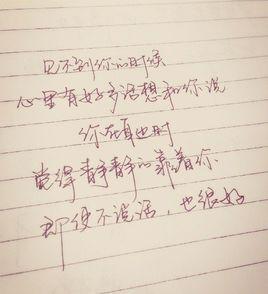 见不到你的时候
心里有好多话想和你说
你在身边时
觉得静静的靠着你
即便不说话，也很好